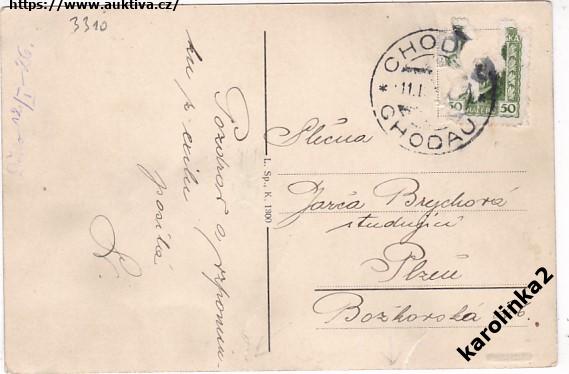 https://www.auktiva.cz/
3310
Pozdrav a vzpomín-
ku z
posílá
L. Sp., K. 1300
CHOD
11.I
CHODAU
50
50
Slečna
Jarča Brychová
studující
Plzeň
Božkovská
karolinka2